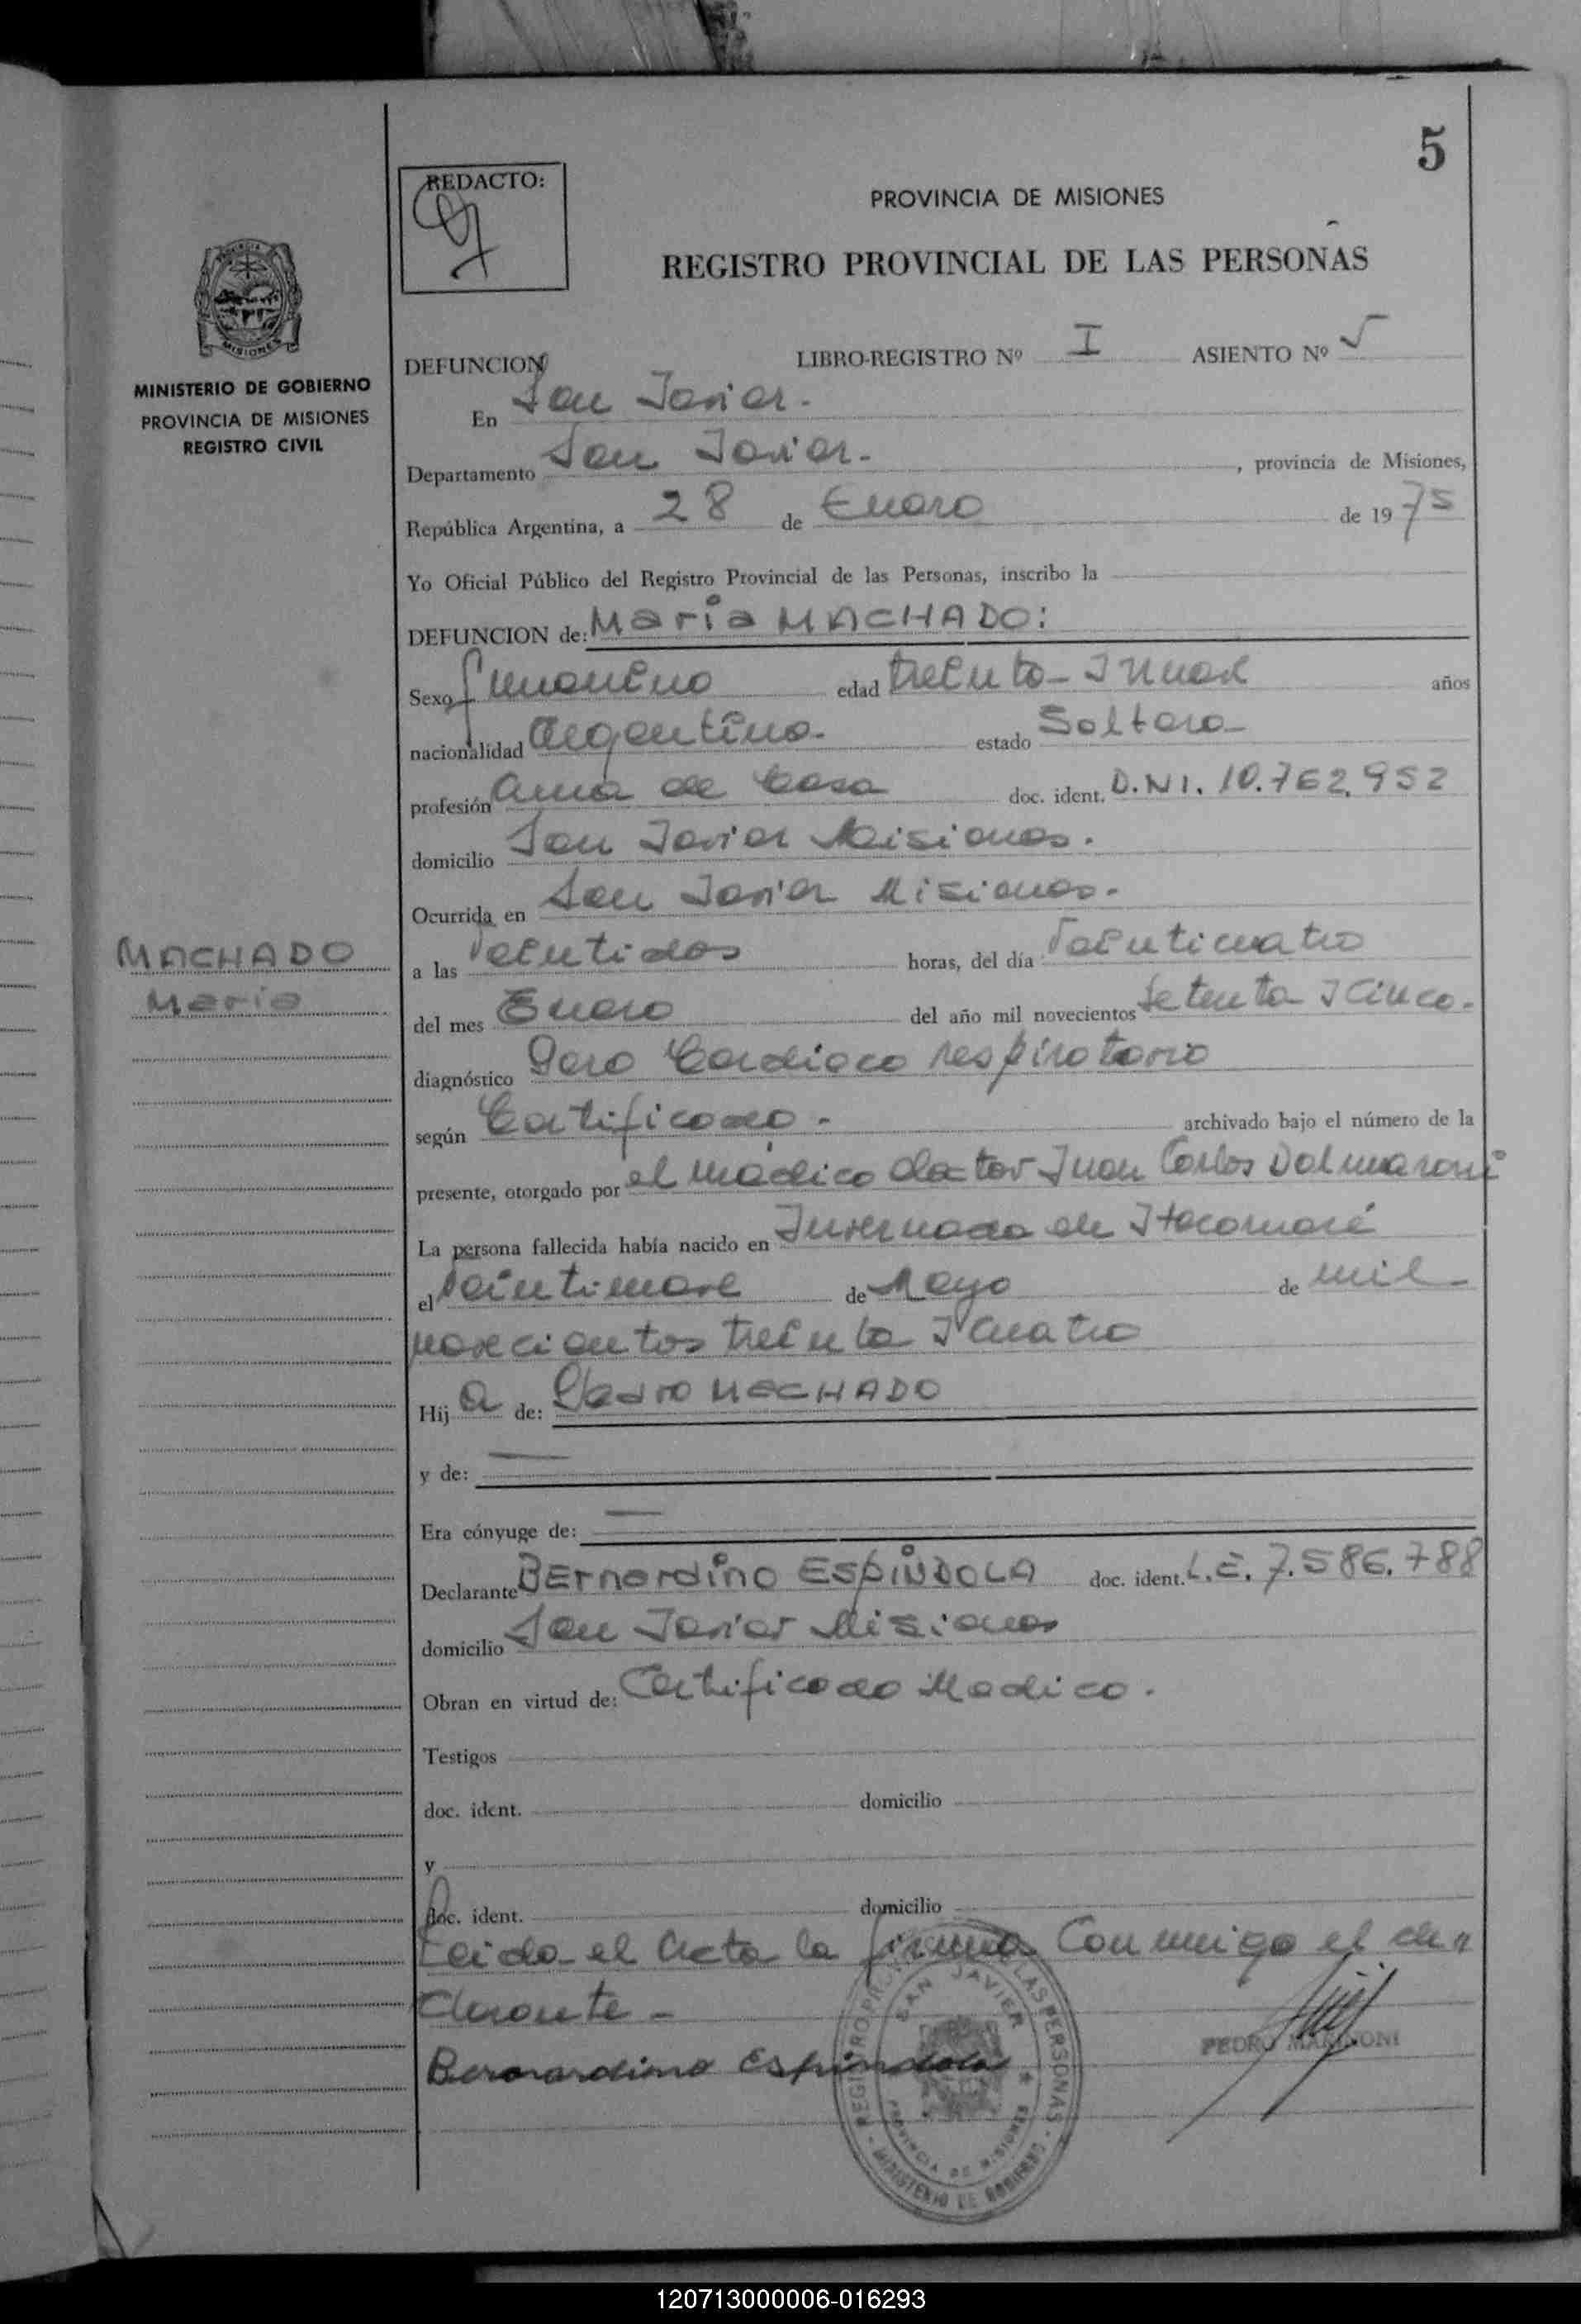 5
REDACTO:
PROVINCIA DE MISIONES
REGISTRO PROVINCIAL DE LAS PERSONAS
MISIONES
MINISTERIO DE GOBIERNO
PROVINCIA DE MISIONES
REGISTRO CIVIL
DEFUNCION LIBRO-REGISTRO Nº I ASIENTO Nº 5
En San Javier.
Departamento San Javier. , provincia de Misiones,
República Argentina, a 28 de Enero de 1975
Yo Oficial Público del Registro Provincial de las Personas, inscribo la
DEFUNCION de: Maria MACHADO:
Sexo femenino edad treinta y nueve años
nacionalidad argentina. estado Soltera
profesión ama de Casa doc. ident. D.N.I. 10.762.952
domicilio San Javier Misiones.
Ocurrida en San Javier Misiones.
MACHADO
Maria
a las veintidos horas, del día veinticuatro
del mes Enero del año mil novecientos setenta y cinco.
diagnóstico Paro Cardiaco respiratorio
según Certificado. archivado bajo el número de la
presente, otorgado por el médico doctor Juan Carlos Dalmaroni
La persona fallecida había nacido en Invernada de Itacaruaré
el veintinueve de Mayo de mil
novecientos treinta y cuatro
Hij a de: Pedro MACHADO
y de: —
Era cónyuge de: —
Declarante BErnardino ESPINDOLA doc. ident. L.E. 7.586.788
domicilio San Javier Misiones
Obran en virtud de: Certificado Medico.
Testigos
doc. ident. domicilio
y
doc. ident. domicilio
Leida el Acta la firma Conmigo el de
clarante -
Bernardino Espindola
PEDRO MARINONI
REGISTRO PROVINCIAL DE LAS PERSONAS - MINISTERIO DE GOBIERNO -
SAN JAVIER
PROVINCIA DE MISIONES
120713000006-016293